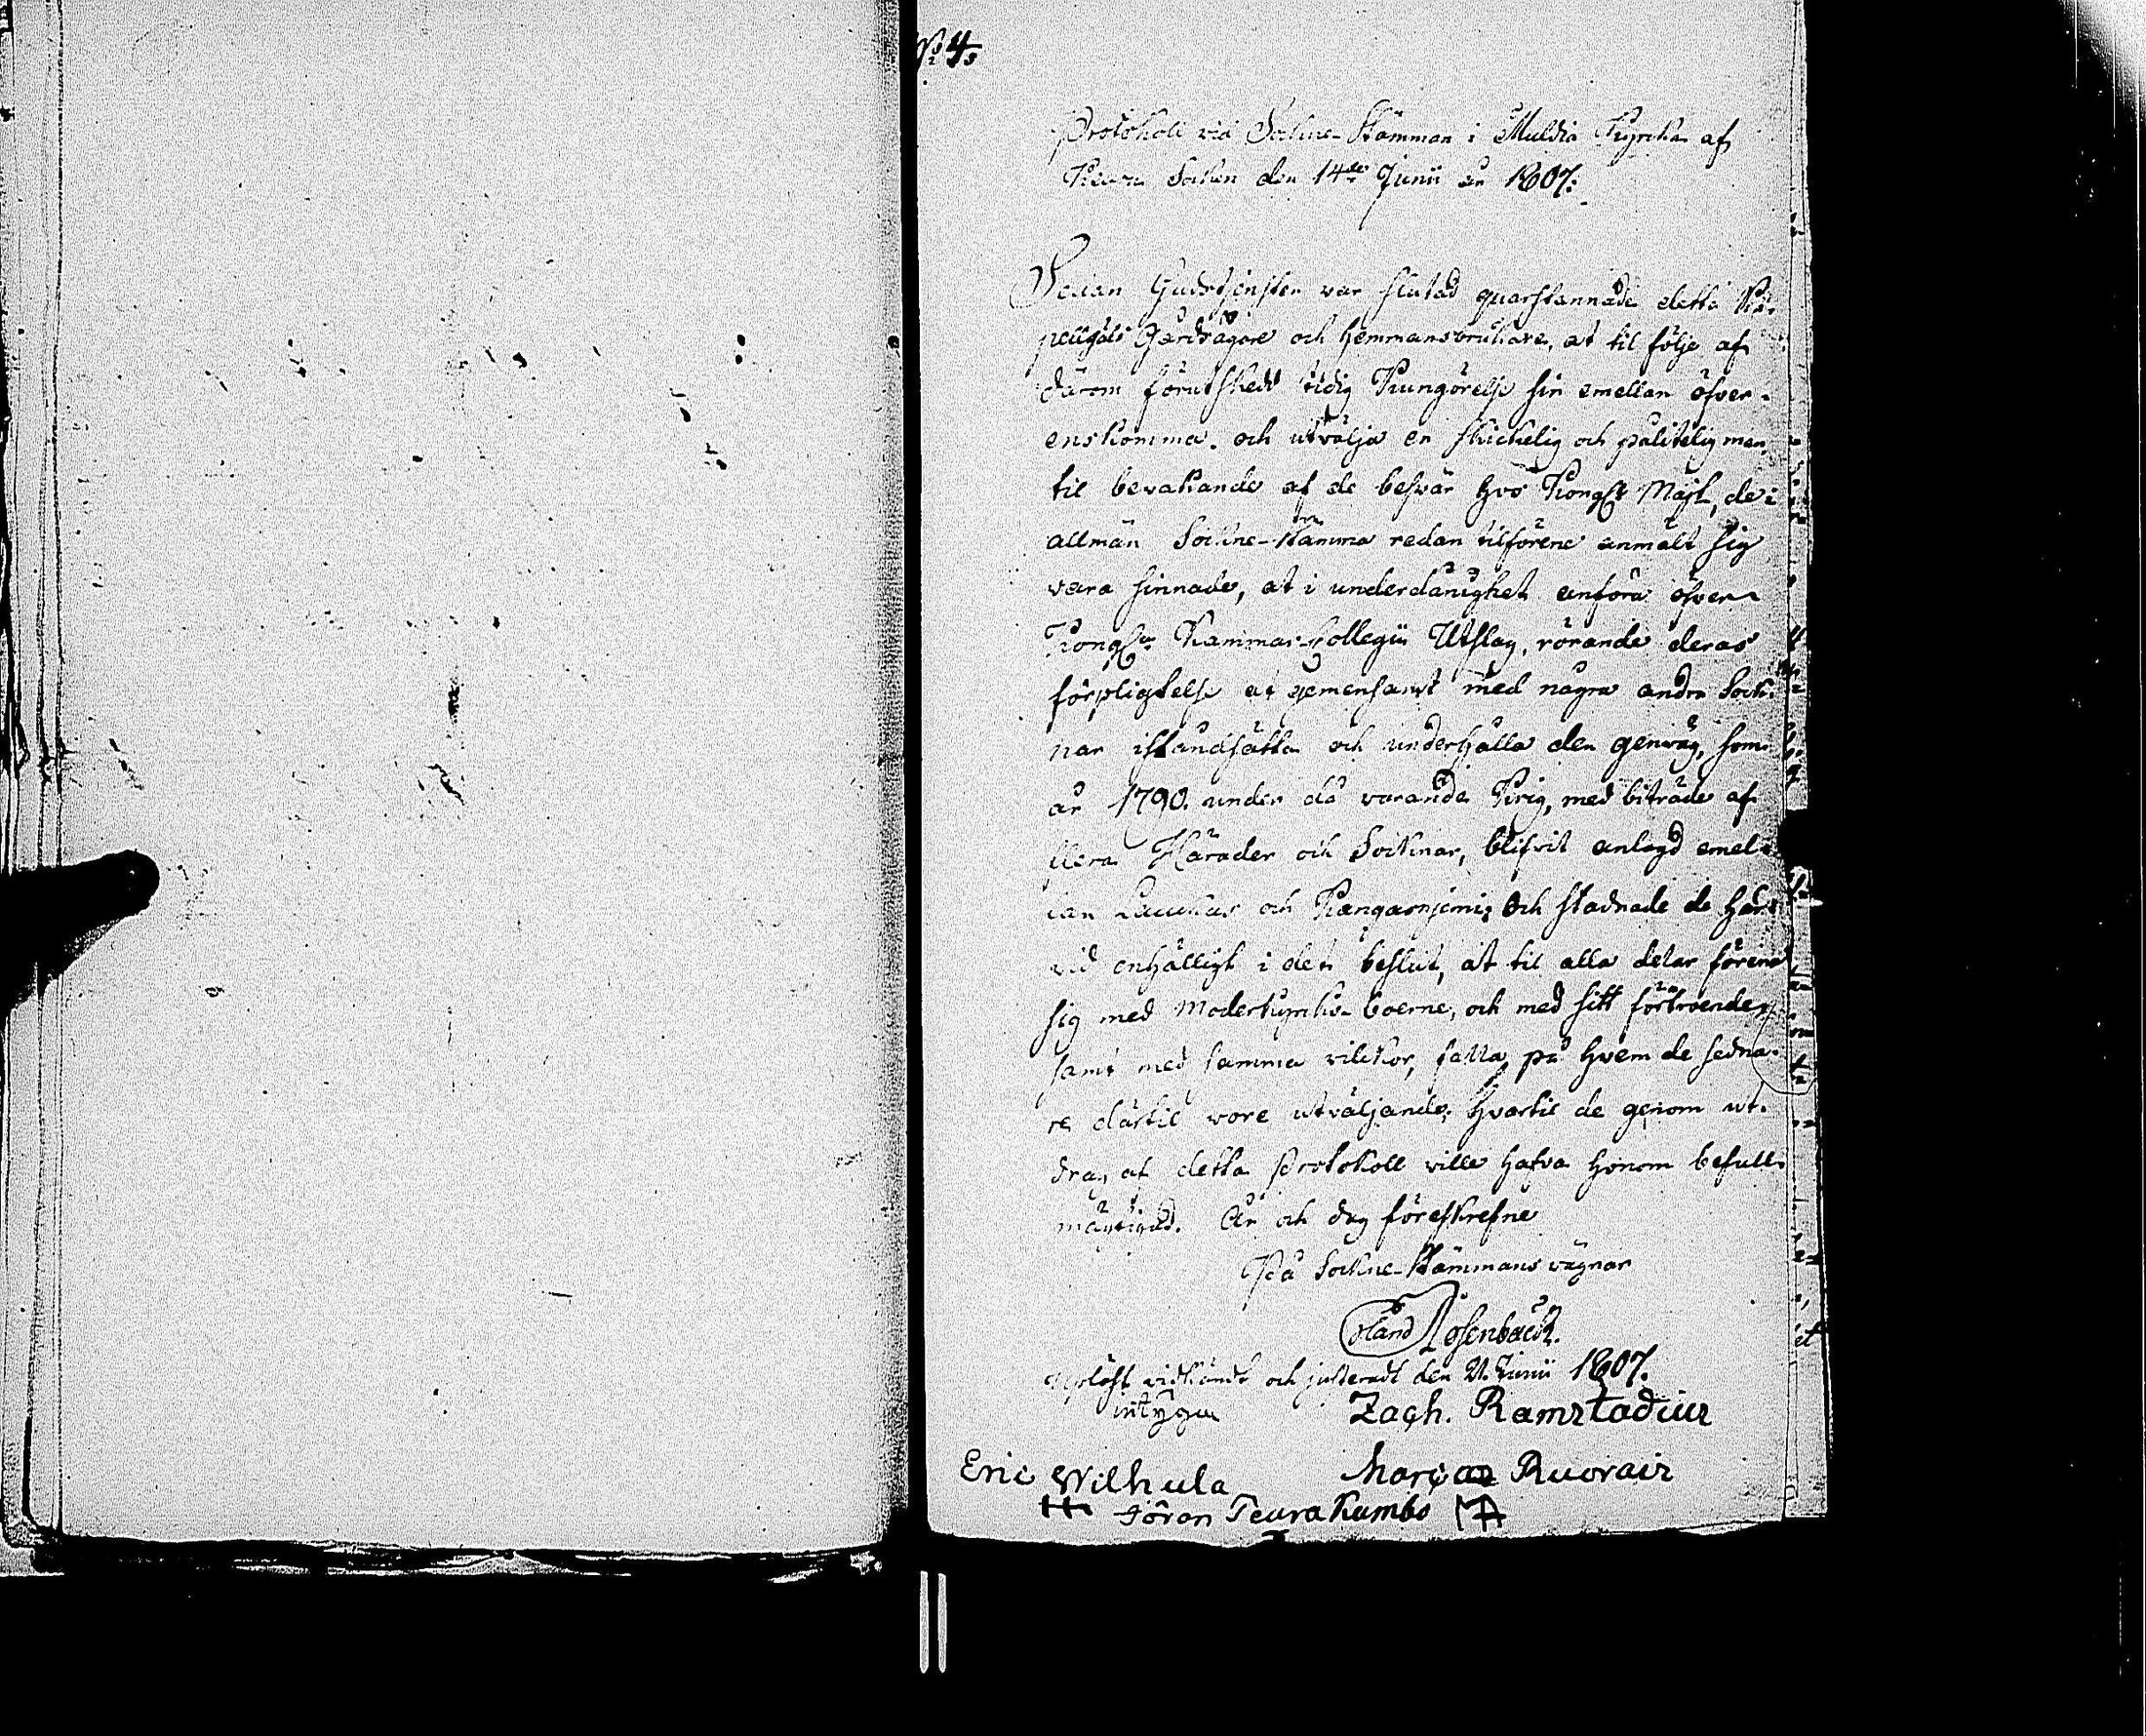 N:o 4.
Protokoll vid Sockne-Stämman i Muldia Kyrcka af
Keuru Socken den 14de Junii år 1807.
Sedan Gudstjensten var slutad quarstannade detta Ka-
pellgäls Gårdsägare och hemmansbrukare, at til följe af
därom förutskedd tidig Kungörelse sin emellan öfver-
enskomma och utvälja en skickelig och pålitelig man,
til bevakande af de besvär hos Kongl. Majt, de i
allmän Sockne-Stämma redan tilförene anmält sig
vara sinnade, at i underdånighet anföra öfver
Kongl. Kammar-Collegii Utslag, rörande deras
förpligtelse at gemensamt med några andra Sock-
nar iståndsätta och underhålla den genväg, som
år 1790. under då varande Krig, med biträde af
flera Härader och Socknar, blifvit anlagd emel-
lan Laukas och Kangasnjemi; Och stadnade de här-
vid enhälligt i det beslut, at til alla delar förena
sig med Moderkyrko-boerne, och med sitt förtroende,
samt med samma vilckor, falla på hvem de sedna-
re därtil vore utväljande; hvartil de genom ut-
drag af detta Protokoll ville hafva honom befull-
mägtigad. År och dag förreskrefne
På Sockne-Stämmans vägnar
Roland Rosenback.
Upläst vidkändt och justeradt den 21. Junii 1807.
intyga Zach. Ramstadius
Eric Wilhula Marcus Ruovais
Jöran Teura Kumbo